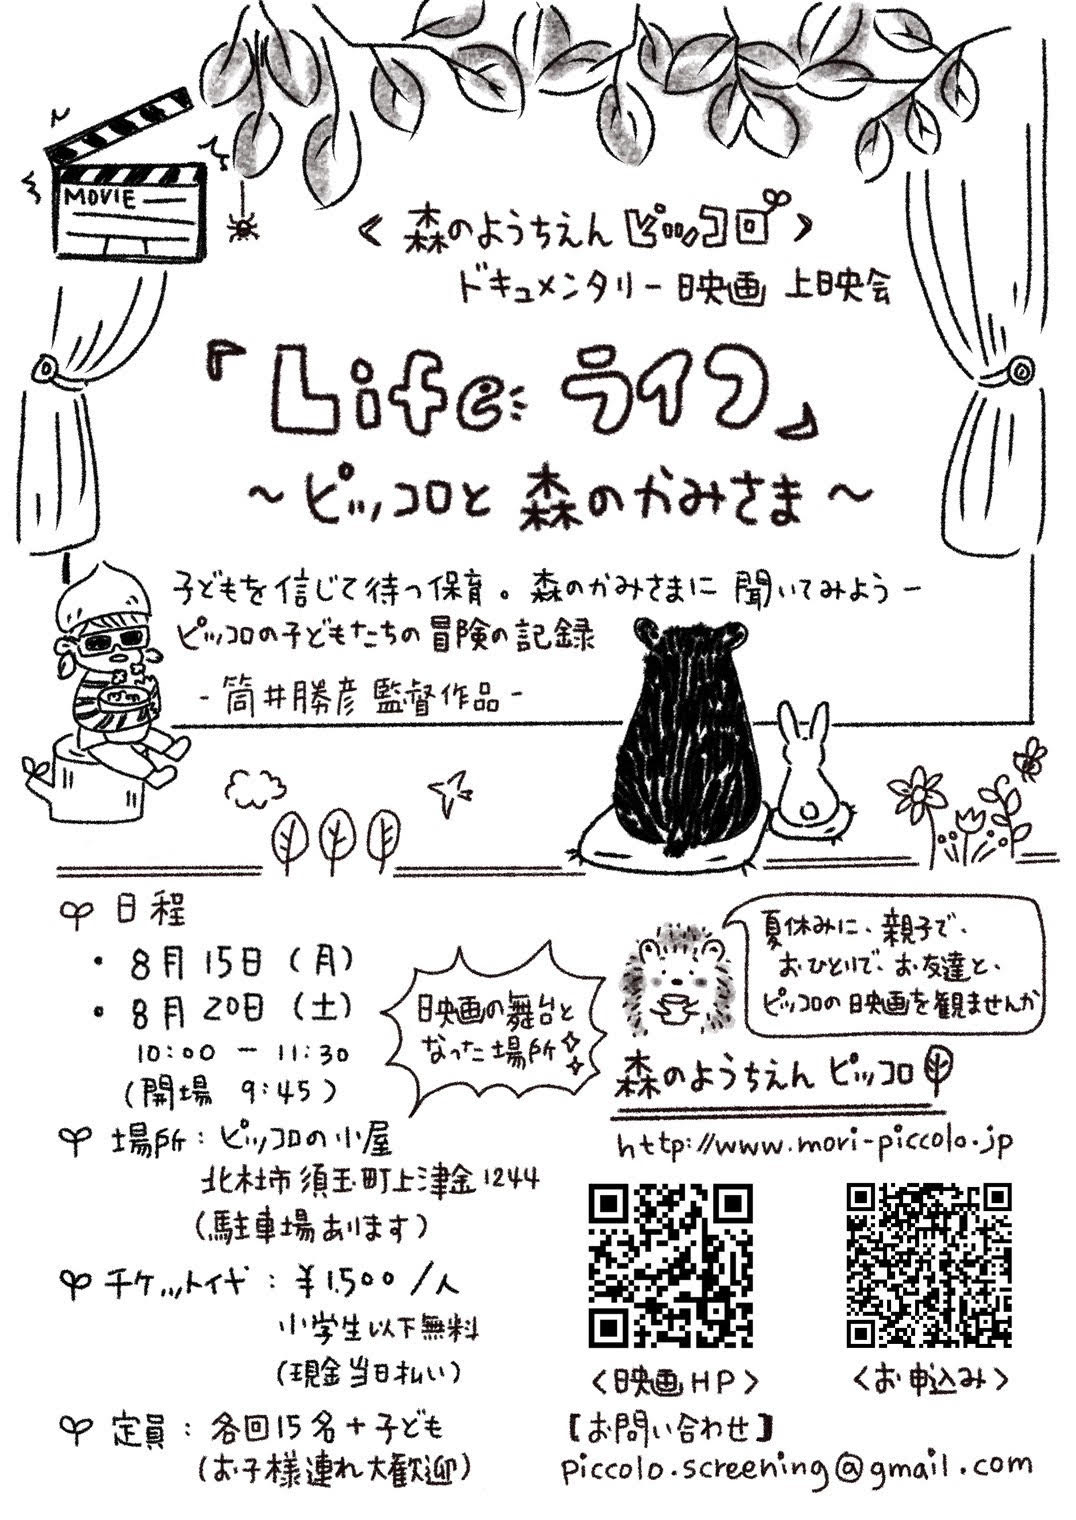 MOVIE
<森のようちえん ピッコロ>
ドキュメンタリー映画 上映会
『Life ライフ』
～ピッコロと 森のかみさま～
子どもを信じて待つ保育。森のかみさまに 聞いてみよう―
ピッコロの子どもたちの冒険の記録
- 筒井勝彦 監督作品 -
日程
・8月15日(月)
・8月20日(土)
10:00 ― 11:30
(開場 9:45)
場所:ピッコロの小屋
北杜市須玉町上津金1244
(駐車場あります)
チケット代:¥1,500/人
小学生以下無料
(現金当日払い)
定員:各回15名+子ども
(お子様連れ大歓迎)
映画の舞台と
なった場所
夏休みに、親子で、
おひとりで、お友達と、
ピッコロの映画を観ませんか
森のようちえん ピッコロ
http://www.mori-piccolo.jp
<映画HP>
<お申込み>
【お問い合わせ】
piccolo.screening@gmail.com